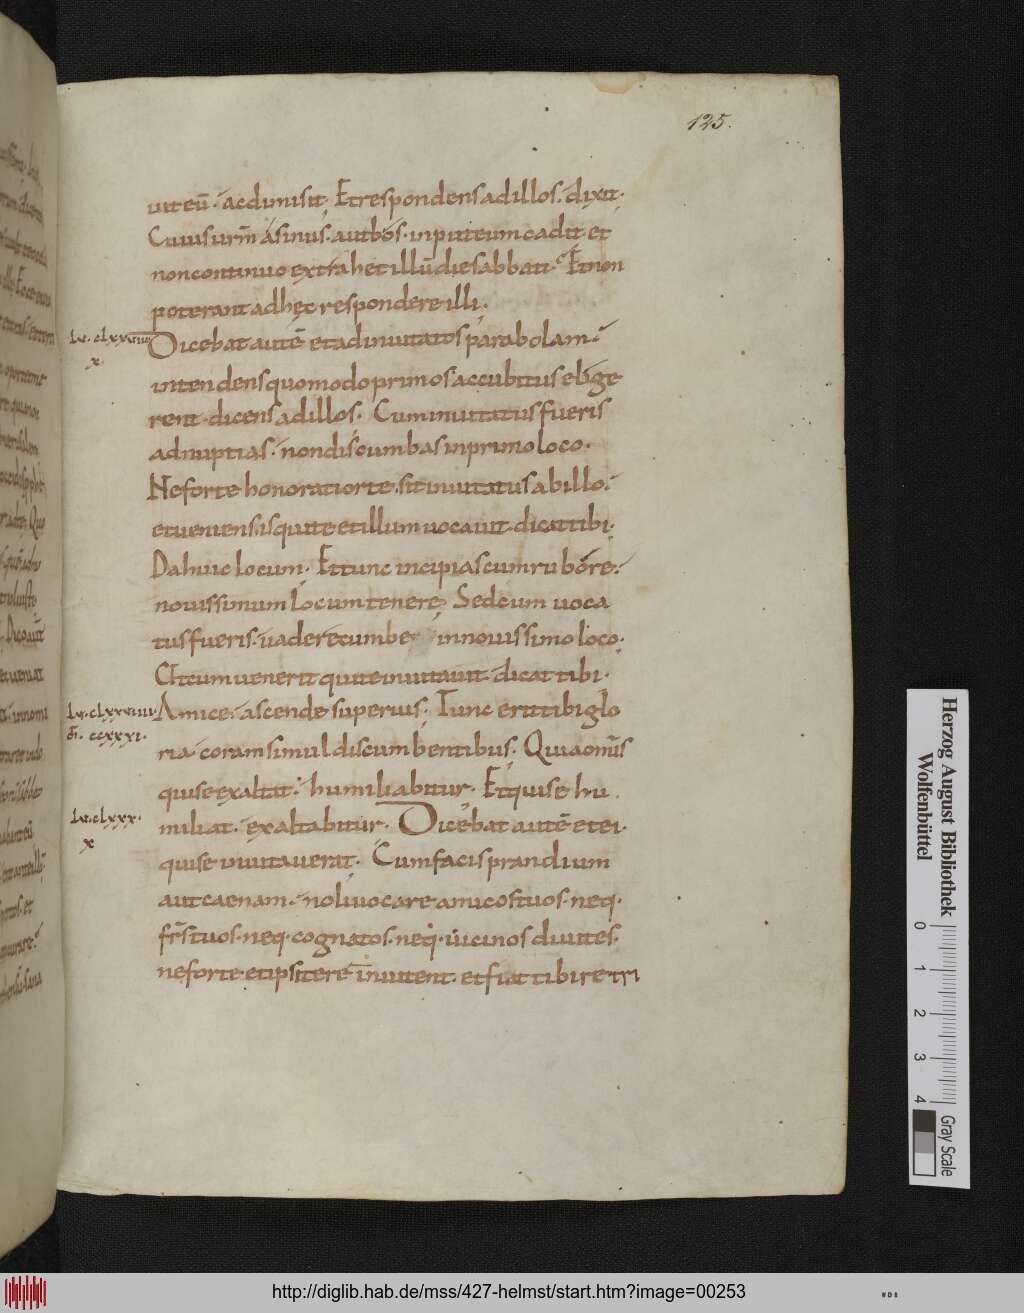 125.
uit eū. ac dimisit. Et respondens ad illos. dixit.
Cuius ur̄m asinus. aut bos. in puteum cadit et
non continuo extrahet illū die sabbati. Et non
poterant ad hęc respondere illi.
Lv. clxxviiii
x.
Dicebat autē et ad inuitatos parabolam.
intendens quomodo primos accubitus elige
rent. dicens ad illos. Cum inuitatus fueris
ad nuptias. non discumbas in primo loco.
Ne forte honoratior te. sit inuitatus ab illo.
et ueniens. is qui te et illum uocauit. dicat tibi.
Da huic locum. Et tunc incipias cum rubore.
nouissimum locum tenere. Sed cum uoca
tus fueris. uade recumbe in nouissimo loco.
Ut cum uenerit qui te inuitauit. dicat tibi.
Lv. clxxviiii
ccxxxi.
Amice. ascende superius. Tunc erit tibi glo
ria. coram simul discumbentibus. Quia omīs
qui se exaltat. humiliabitur. Et qui se hu
Lv. clxxx.
x
miliat. exaltabitur. Dicebat autē et ei.
qui se inuitauerat. Cum facis prandium
aut caenam. noli uocare amicos tuos. neq.
fr̄s tuos. neq. cognatos. neq. uicinos diuites.
ne forte et ipsi te reinuitent. et fiat tibi retri
Herzog August Bibliothek
Wolfenbüttel
0 1 2 3 4
Gray Scale
http://diglib.hab.de/mss/427-helmst/start.htm?image=00253